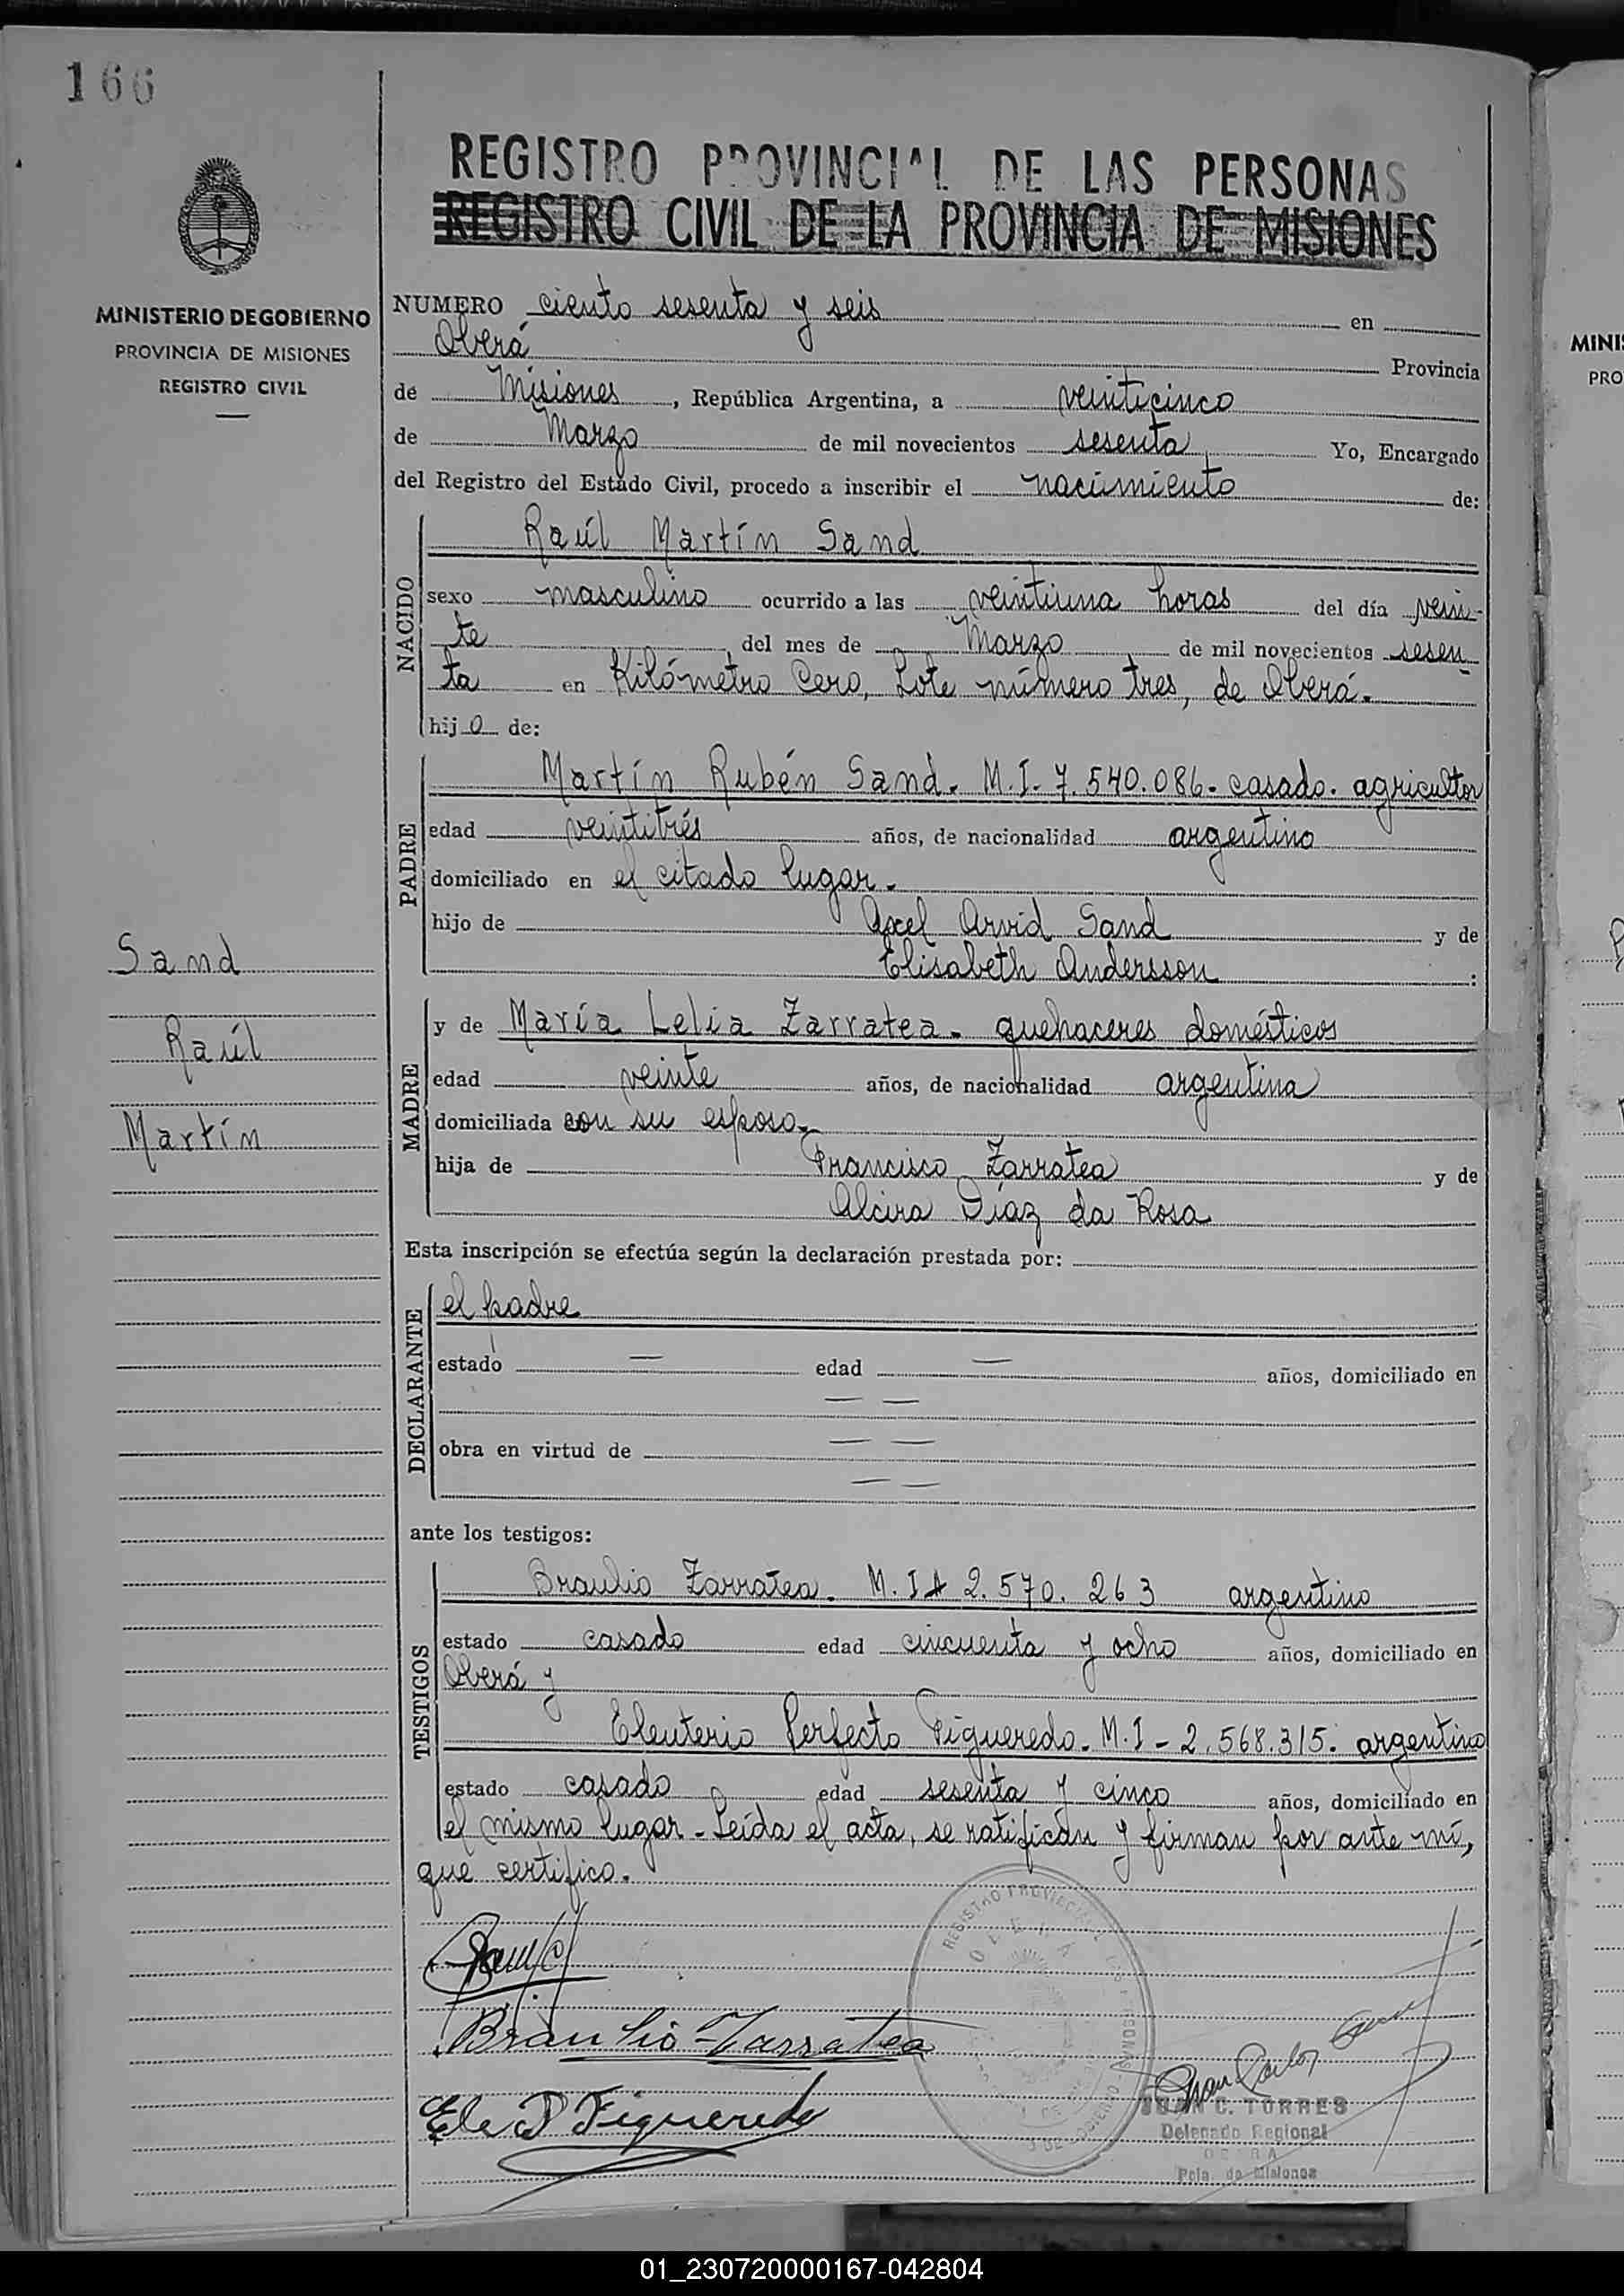 166
REGISTRO PROVINCIAL DE LAS PERSONAS
REGISTRO CIVIL DE LA PROVINCIA DE MISIONES
MINISTERIO DE GOBIERNO
PROVINCIA DE MISIONES
REGISTRO CIVIL
NUMERO ciento sesenta y seis en
Oberá Provincia
de Misiones, República Argentina, a veinticinco
de Marzo de mil novecientos sesenta, Yo, Encargado
del Registro del Estado Civil, procedo a inscribir el nacimiento de:
NACIDO
Raúl Martín Sand
sexo masculino ocurrido a las veintiuna horas del día vein-
te del mes de Marzo de mil novecientos sesen-
ta en Kilómetro Cero, Lote número tres, de Oberá.
hijo de:
PADRE
Martín Rubén Sand. M.I. 7.540.086. casado. agricultor
edad veintitrés años, de nacionalidad argentino
domiciliado en el citado lugar.
hijo de Axel Arvid Sand y de
Elisabeth Andersson :
Sand
Raúl
Martín
MADRE
y de María Lelia Zarratea. quehaceres domésticos
edad veinte años, de nacionalidad argentina
domiciliada con su esposo.
hija de Francisco Zarratea y de
Alcira Díaz da Rosa
Esta inscripción se efectúa según la declaración prestada por:
DECLARANTE
el padre
estado — edad — años, domiciliado en
— —
obra en virtud de — —
— —
ante los testigos:
TESTIGOS
Braulio Zarratea. M.I. 2.570.263 argentino
estado casado edad cincuenta y ocho años, domiciliado en
Oberá y
Eleuterio Perfecto Figueredo. M.I - 2.568.315. argentino
estado casado edad sesenta y cinco años, domiciliado en
el mismo lugar - Leída el acta, se ratifican y firman por ante mí,
que certifico.
Braulio Zarratea
Ele P Figueredo
Juan Carlos
JUAN C. TORRES
Delegado Regional
OBERA
Pcia. de Misiones
MINIS
PRO
01_230720000167-042804